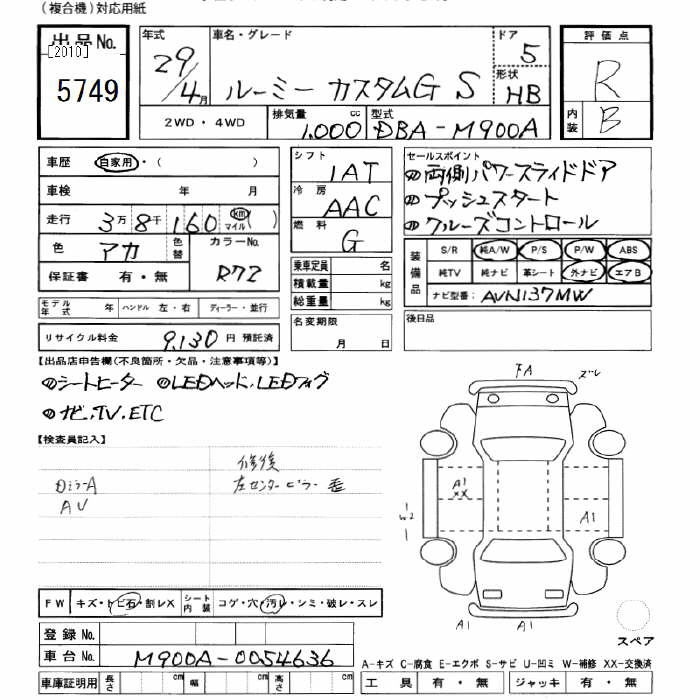 (複合機)対応用紙
出品No.
[2010]
5749
年式
29/4月
車名・グレード
ルーミー カスタムG S
ドア
5
形状
HB
評価点
R
内装
B
2WD・4WD
排気量
1,000
cc
型式
DBA-M900A
車歴 自家用・( )
車検 年 月
走行 3万 8千 160 km マイル( )
色 アカ 色替 カラーNo. R72
保証書 有・無
モデル年式 年 ハンドル 左・右 ディーラー・並行
リサイクル料金 9,130 円 預託済
シフト IAT
冷房 AAC
燃料 G
乗車定員 名
積載量 kg
総重量 kg
名変期限
月 日
セールスポイント
両側パワースライドドア
プッシュスタート
クルーズコントロール
装備品
S/R 純A/W P/S P/W ABS
純TV 純ナビ 革シート 外ナビ エアB
ナビ型番: AVN137MW
後日品
【出品店申告欄(不良箇所・欠品・注意事項等)】
シートヒーター LEDヘッド.LEDフォグ
ナビ.TV.ETC
【検査員記入】
修後
左センターピラー
DミラーA
AU
FA ズレ
A1
XX
W2
A1
A1 A1
スペア
FW キズ・トビ石・割レX シート内装 コゲ・穴・汚レ・シミ・破レ・スレ
登録No.
車台No. M900A-0054636
車庫証明用 長さ cm 幅 cm 高さ cm
A-キズ C-腐食 E-エクボ S-サビ U-凹ミ W-補修 XX-交換済
工具 有・無 ジャッキ 有・無